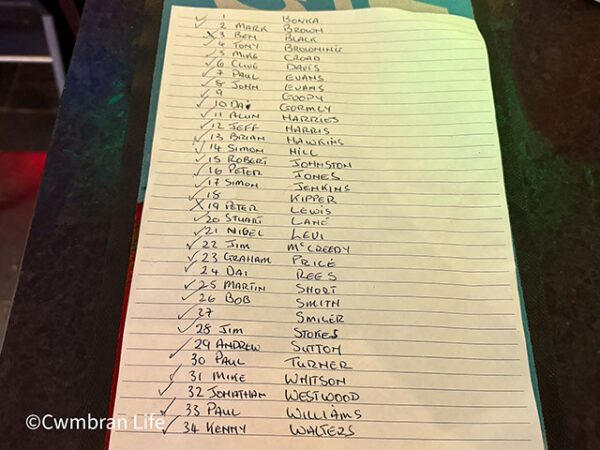 ✓ 1 BONKA
✓ 2 MARK BROWN
✗ 3 BEN BLACK
✓ 4 TONY BROWNING
✓ 5 MIKE CROAD
✓ 6 CLIVE DAVIS
✓ 7 PAUL EVANS
✓ 8 JOHN EVANS
✓ 9 GOOPY
✓ 10 DAI GORMLY
✓ 11 ALUN HARRIES
✓ 12 JEFF HARRIS
✓ 13 BRIAN HAWKINS
✓ 14 SIMON HILL
✓ 15 ROBERT JOHNSTON
✓ 16 PETER JONES
✓ 17 SIMON JENKINS
✓ 18 KIPPER
✗ 19 PETER LEWIS
✓ 20 STUART LANE
✓ 21 NIGEL LEVI
✓ 22 JIM McCREEDY
✓ 23 GRAHAM PRICE
✓ 24 DAI REES
✓ 25 MARTIN SHORT
✓ 26 BOB SMITH
✓ 27 SMILER
✓ 28 JIM STOKES
✓ 29 ANDREW SUTTON
✓ 30 PAUL TURNER
✓ 31 MIKE WHITSON
✓ 32 JONATHAN WESTWOOD
✓ 33 PAUL WILLIAMS
✓ 34 KENNY WALTERS
©Cwmbran Life